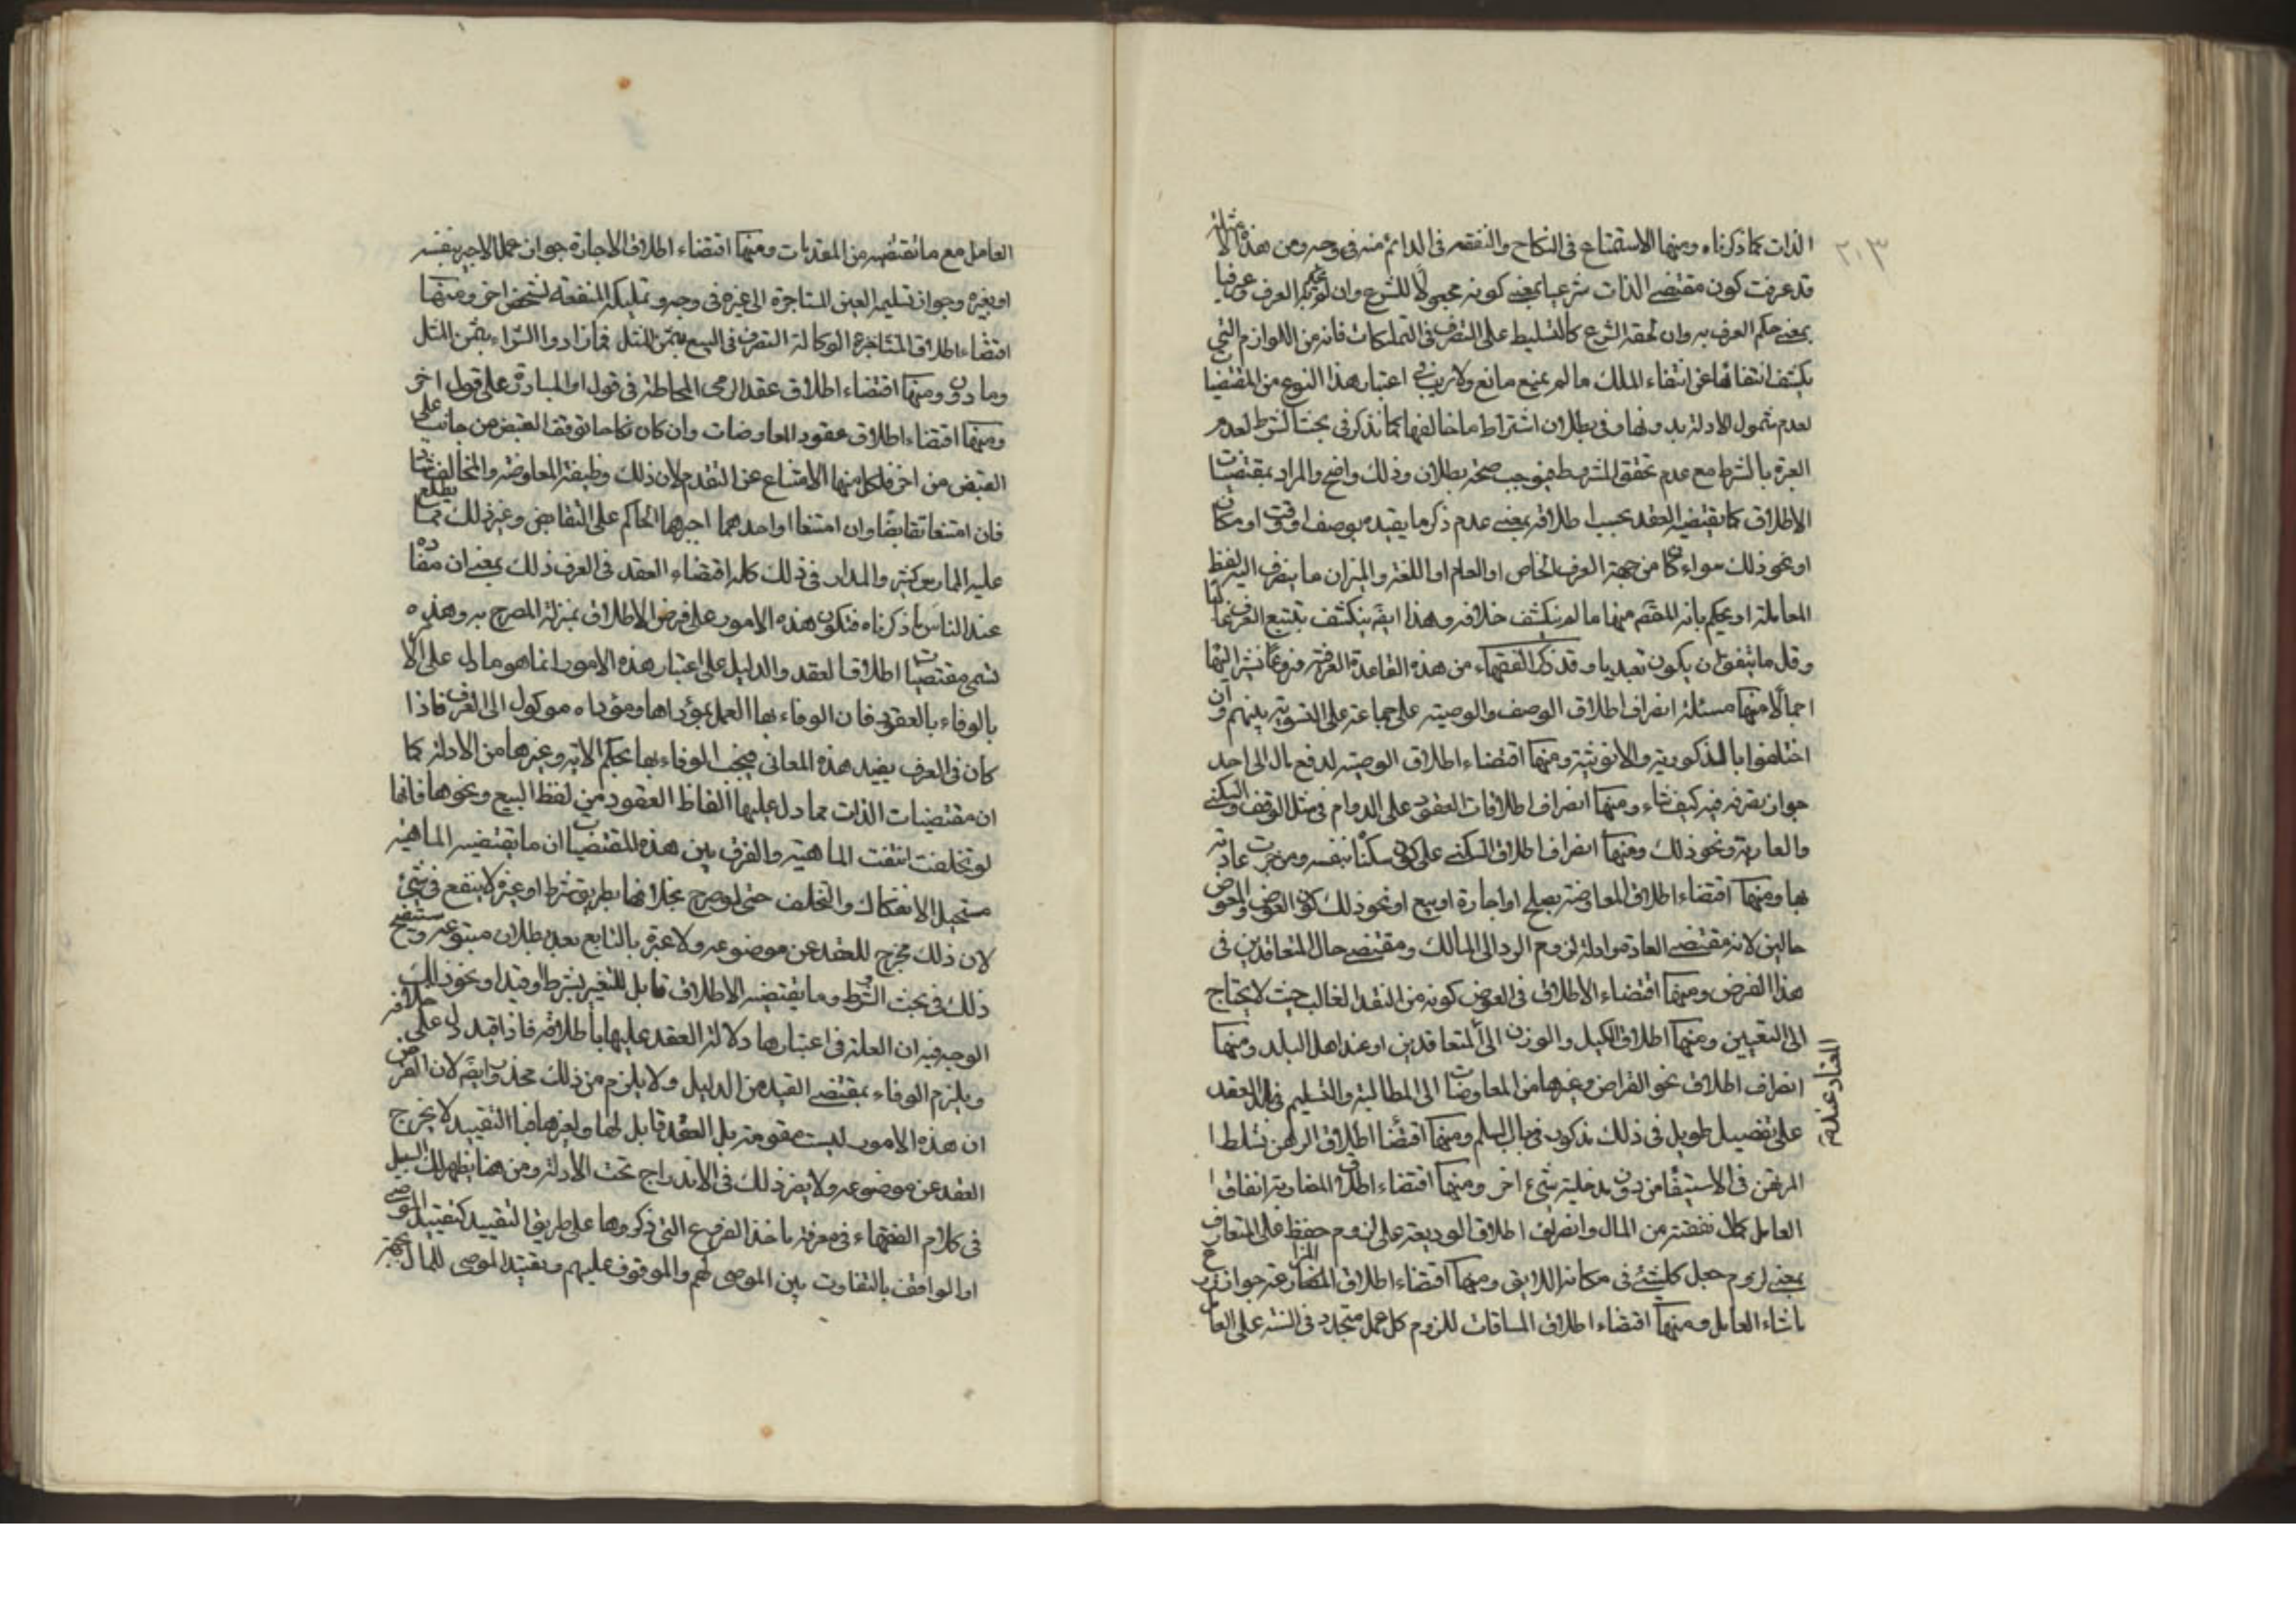 ٢٠٣
الذات كما ذكرناه ومنها الاستمتاع في النكاح والنفقه في الدائم منه في وجه ومن هذه الامثلة
قد عرفت كون مقتضى الذات شرعيا بمعنى كونه مجعولا للشرع وان لم يحكم به العرف وعرفيا
بمعنى حكم العرف به وان لحقه الشرع كالتسليط على التصرف في التملكات فانه من اللوازم التي
يكشف انتفائها عن انتفاء الملك ما لم يمنع مانع ولا ريب في اعتبار هذا النوع من المقتضيات
لعدم شمول الادلة بدونها وفي بطلان اشتراط ما خالفها كما نذكر في بحث الشرط لعدم
العبرة بالشرط مع عدم تحقق المشروط فيوجب صحته بطلان وذلك واضح والمراد بمقتضيات
الاطلاق كما يقتضيه العقد بحسب اطلاقه بمعنى عدم ذكر ما يقيده بوصف او وقت او مكان
او نحو ذلك سواء كان من جهة العرف الخاص او العام او اللغة والميزان ما ينصرف اليه لفظ
المعاملة او يحكم بانه المقصـ منها ما لم ينكشف خلافه وهذا ايضـ ينكشف بتتبع العرف غالبا
وقل ما يتفق ان يكون تعبديا وقد ذكر الفقهاء من هذه القاعدة العرفية فروعا نشير اليها
اجمالا منها مسئلة انصراف اطلاق الوصف والوصية على جماعة على التسوية بينهم وان
اختلفوا بالذكورية والانوثية ومنها اقتضاء اطلاق الوصية لدفع مال الى احد
جواز تصرفه فيه كيف شاء ومنها انصراف اطلاقات العقود على الدوام في مثل الوقف والسكنى
والعارية ونحو ذلك ومنها انصراف اطلاق السكنى على كون سكنا بنفسه ومن جرت عادته
بها ومنها اقتضاء اطلاق المعاوضة بصلح او اجارة او بيع او نحو ذلك كون العوض والمعوض
حالين لانه مقتضى العادة وادلة لزوم الرد الى المالك ومقتضى حال المتعاقدين في
هذا الفرض ومنها اقتضاء الاطلاق في العوض كونه من النقد الغالب حيث لا يحتاج
الى التعيين ومنها اطلاق الكيل والوزن الى المتعاقدين او عند اهل البلد ومنها
المعتاد عندهم
انصراف اطلاق نحو القراض وغيرها من المعاوضات الى المطالبة والتسليم في بلد العقد
على تفصيل طويل في ذلك مذكور في باب السلم ومنها اقتضاء اطلاق الرهن تسلط
المرتهن في الاستيفاء من دون مدخلية شيء اخر ومنها اقتضاء اطلاق المضاربة انفاق
العامل كمال نفقته من المال وانصراف اطلاق الوديعة على لزوم حفظ على المتعارف
بمعنى لزوم جعل كل شئ في مكانه اللايق ومنها اقتضاء اطلاق المزارعة جواز زرع
ما شاء العامل ومنها اقتضاء اطلاق المساقات للزوم كل عمل متجدد في السنة على العامل
العامل مع ما تقتضيه من المقدمات ومنها اقتضاء اطلاق الاجارة جواز عمل الاجير بنفسه
او بغيره وجواز تسليم العين المستاجرة الى غيره في وجه وتمليك المنفعة لشخص اخر ومنها
اقتضاء اطلاق الوكالة التصرف في البيع بثمن المثل فما زاد والشراء بثمن المثل
وما دون ومنها اقتضاء اطلاق عقد الرمى المحاطة في قول او المبادرة على قول اخر
ومنها اقتضاء اطلاق عقود المعاوضات وان كان نكاحا توقف القبض من جانب على
القبض من اخر فلكل منهما الامتناع عن التقدم لان ذلك وظيفة المعاوضة والمخالف شاذ
فان امتنعا تقابضا وان امتنعا او احدهما اجبرهما الحاكم على التقابض وغير ذلك مما يطلع
عليه الممارس كثير والمدار في ذلك كله اقتضاء العقد في العرف ذلك بمعنى ان مفاده
عند الناس ما ذكرناه فتكون هذه الامور على فرض الاطلاق بمنزلة المصرح به وهذه
تسمى مقتضيات اطلاق العقد والدليل على اعتبار هذه الامور انما هو ما دل على الامر
بالوفاء بالعقود فان الوفاء بها العمل بمؤداها ومؤداه موكول الى العرف فاذا
كان في العرف يفيد هذه المعاني فيجب الوفاء بها بحكم الاية وغيرها من الادلة كما
ان مقتضيات الذات مما دل عليها الفاظ العقود من لفظ البيع ونحوها فانها
لو تخلفت انتفت الماهية والفرق بين هذه المقتضيات ان ما يقتضيه الماهية
مستحيل الانفكاك والتخلف حتى لو صرح بخلافها بطريق شرط او غيره لا ينفع في شئ
لان ذلك مخرج للعقد عن موضوعه ولا عبرة بالتابع بعد بطلان متبوعه وستتضح
ذلك في بحث الشروط وما يقتضيه الاطلاق قابل للتغير بشرط او قيد او نحو ذلك
الوجه فيه ان العلة في اعتبارها دلالة العقد عليها باطلاقه فاذا قيد دل على خلافه
ويلزم الوفاء بمقتضى القيد من الدليل ولا يلزم من ذلك محذور ايضـ لان الفرض
ان هذه الامور ليست مقومة بل العقد قابل لها ولغيرها فبالتقييد لا يخرج
العقد عن موضوعه ولا يضر ذلك في الاندراج تحت الادلة ومن هنا يظهر لك السبيل
في كلام الفقهاء في معرفة ماخذ الفروع التي ذكروها على طريق التقييد كتقييد الموصى
او الواقف بالتفاوت بين الموصى لهم والموقوف عليهم وتقييد الموصى للمال بجهة